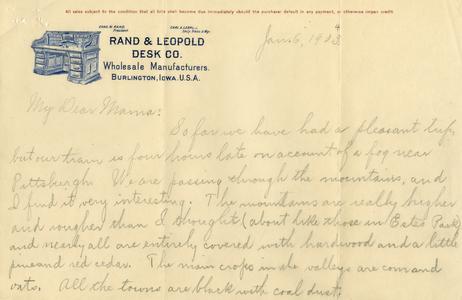 All sales subject to the condition that all bills shall become due immediately should the purchaser default in any payment, or otherwise impair credit.
CHAS. W. RAND, CARL A. LEOPOLD,
President Sec'y Treas. & Mgr.
RAND & LEOPOLD
DESK CO.
Wholesale Manufacturers.
BURLINGTON, IOWA. U.S.A.
4
Jan. 6, 1903
My Dear Mama:
So far we have had a pleasant trip,
but our train is four hours late on account of a fog near
Pittsburgh. We are passing through the mountains, and
I find it very interesting. The mountains are really higher
and rougher than I thought (about like those in Estes Park)
and nearly all are entirely covered with hardwood and a little
pine and red cedar. The main crops in the valleys are corn and
oats. All the towns are black with coal dust.